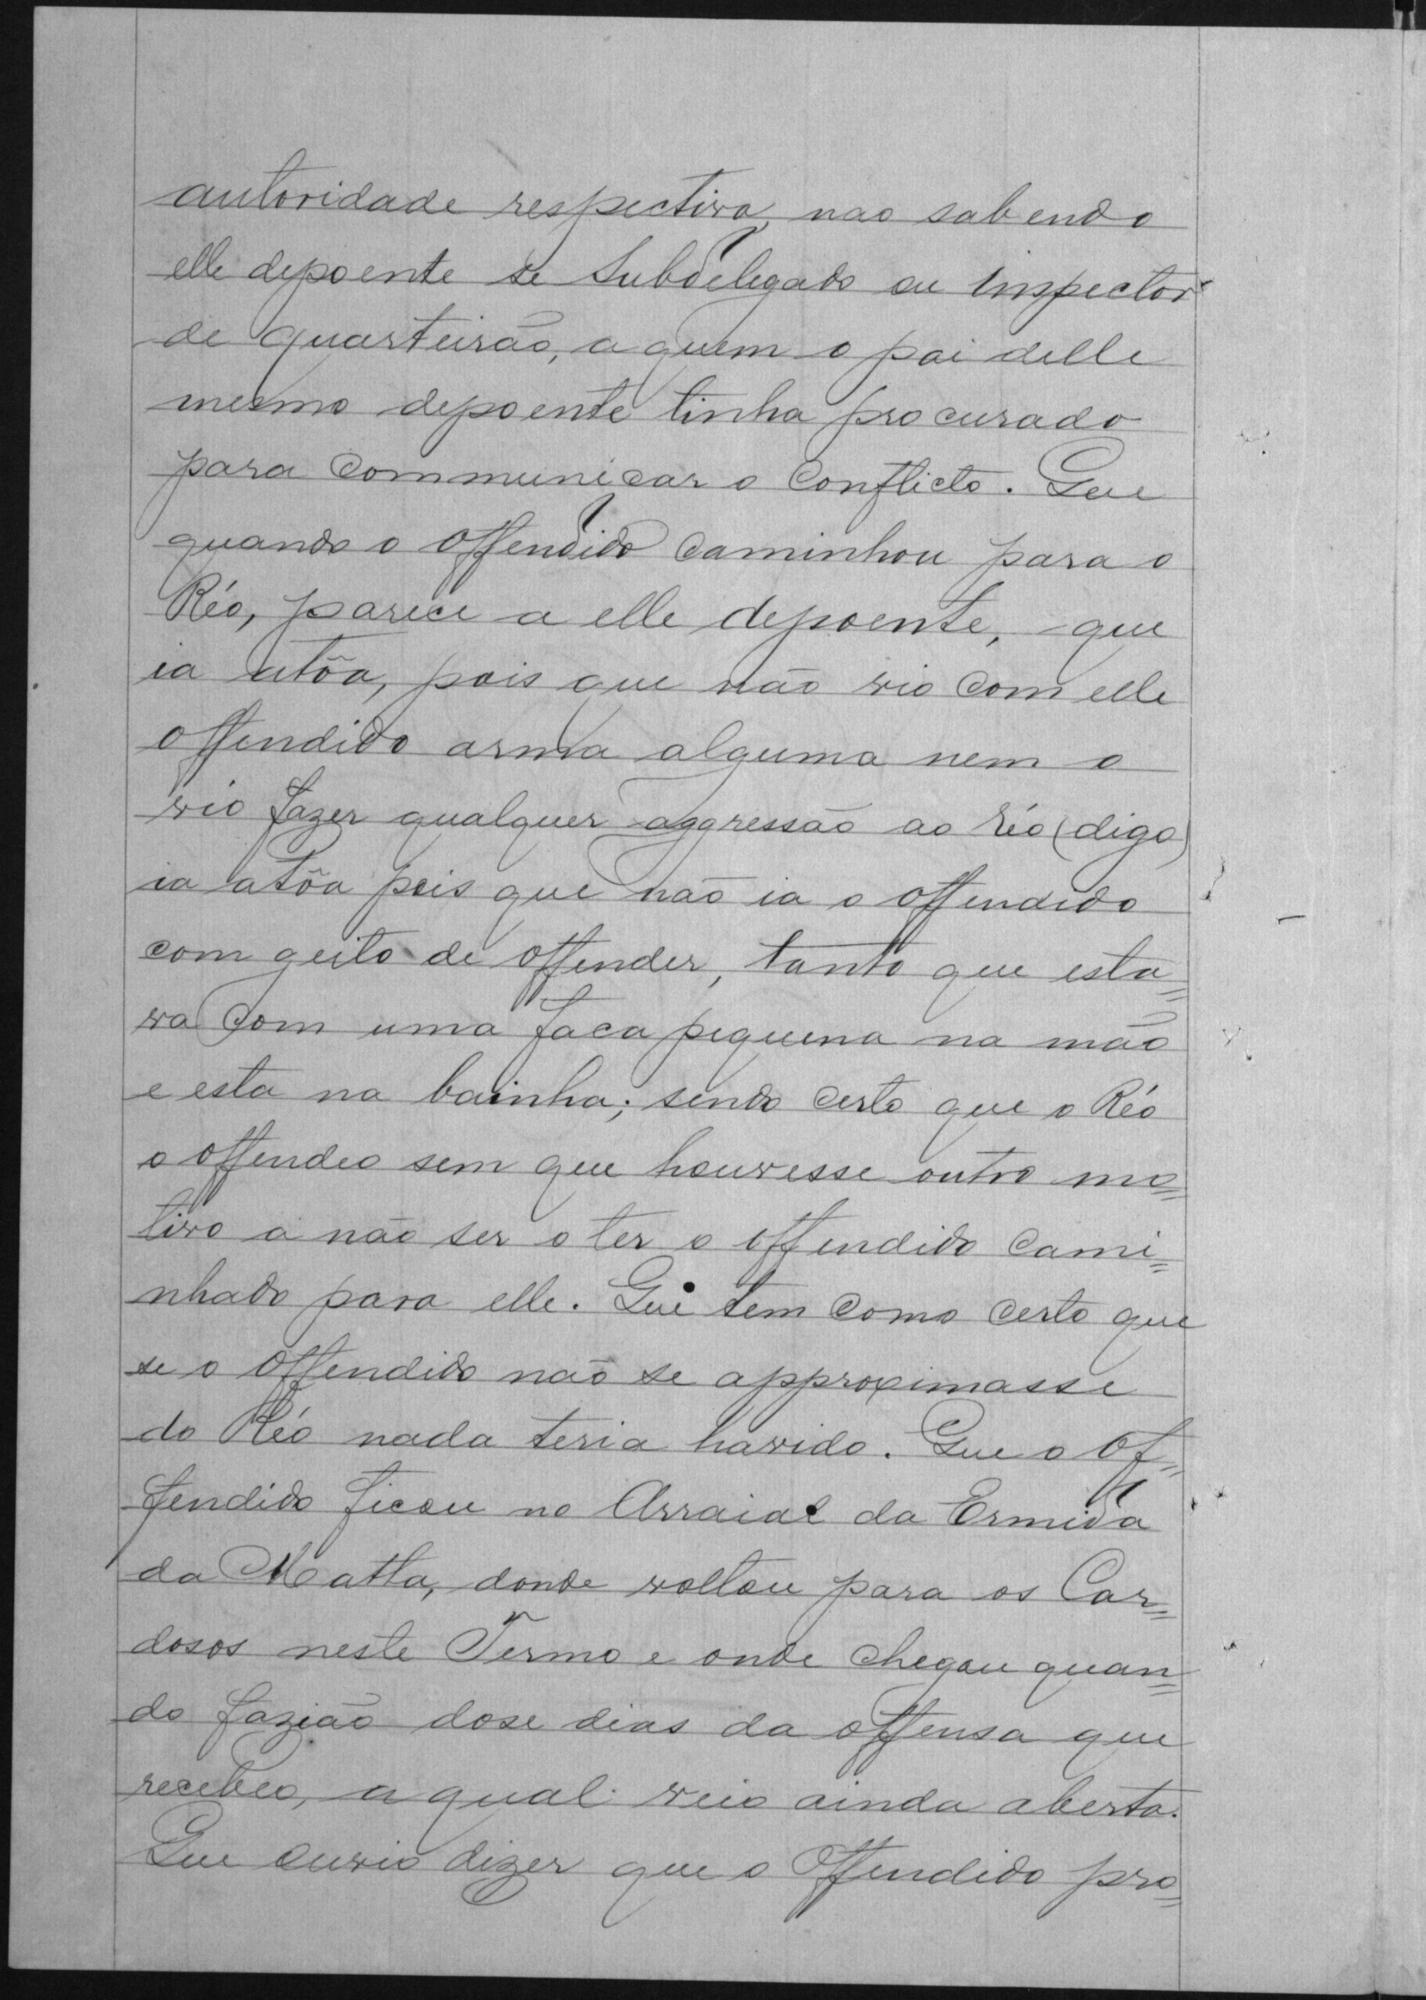 autoridade respectiva, nao sabendo
elle depoente se Subdelegado ou Inspector
de quarteirão, a quem o pai delle
mesmo depoente tinha procurado
para communicar o Conflicto. Que
quando o offendido caminhou para o
Réo, parece a elle depoente, que
ia atôa, pois que não vio com elle
offendido arma alguma nem o
vio fazer qualquer aggressão ao réo (digo)
ia atôa pois que não ia o offendido
com geito de offender, tanto que esta=
va com uma faca pequena na mão
e esta na bainha; sendo certo que o Réo
o offendeo sem que houvesse outro mo=
tivo a não ser o ter o offendido cami=
nhado para elle. Que tem como certo que
se o offendido não se approximasse
do Réo nada teria havido. Que o of=
fendido ficou no Arraial da Ermida
da Matta, donde voltou para os Car=
dosos neste Termo e onde chegou quan=
do fazião dose dias da offensa que
recebeo, a qual veio ainda aberta.
Que ouvio dizer que o Offendido pro=